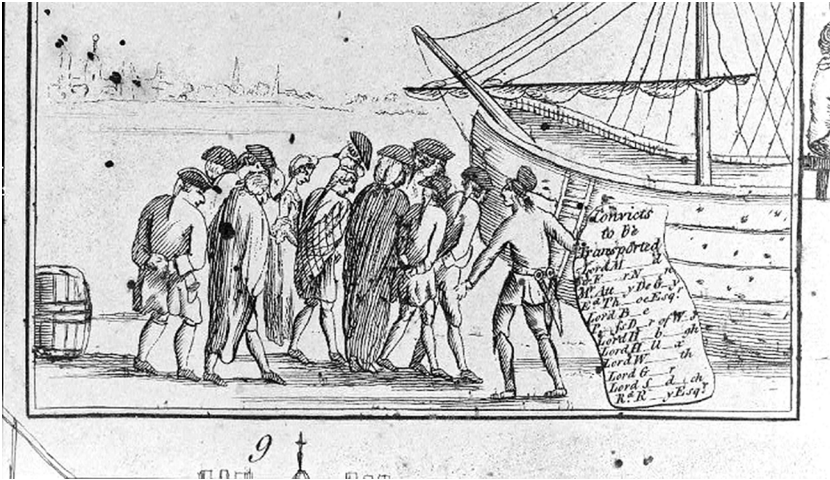 Convicts
to be
Transported
Lord M__d
Sr F__r N__n
Wm Att__y De G__y
Ed Th__oe Esqr
Lord B__e
P__fs D__r of W__s
Lord H__gh
Lord H__ll__x
Lord W__th
Lord G__r
Lord S__d__ch
Rd R__y Esqr
9